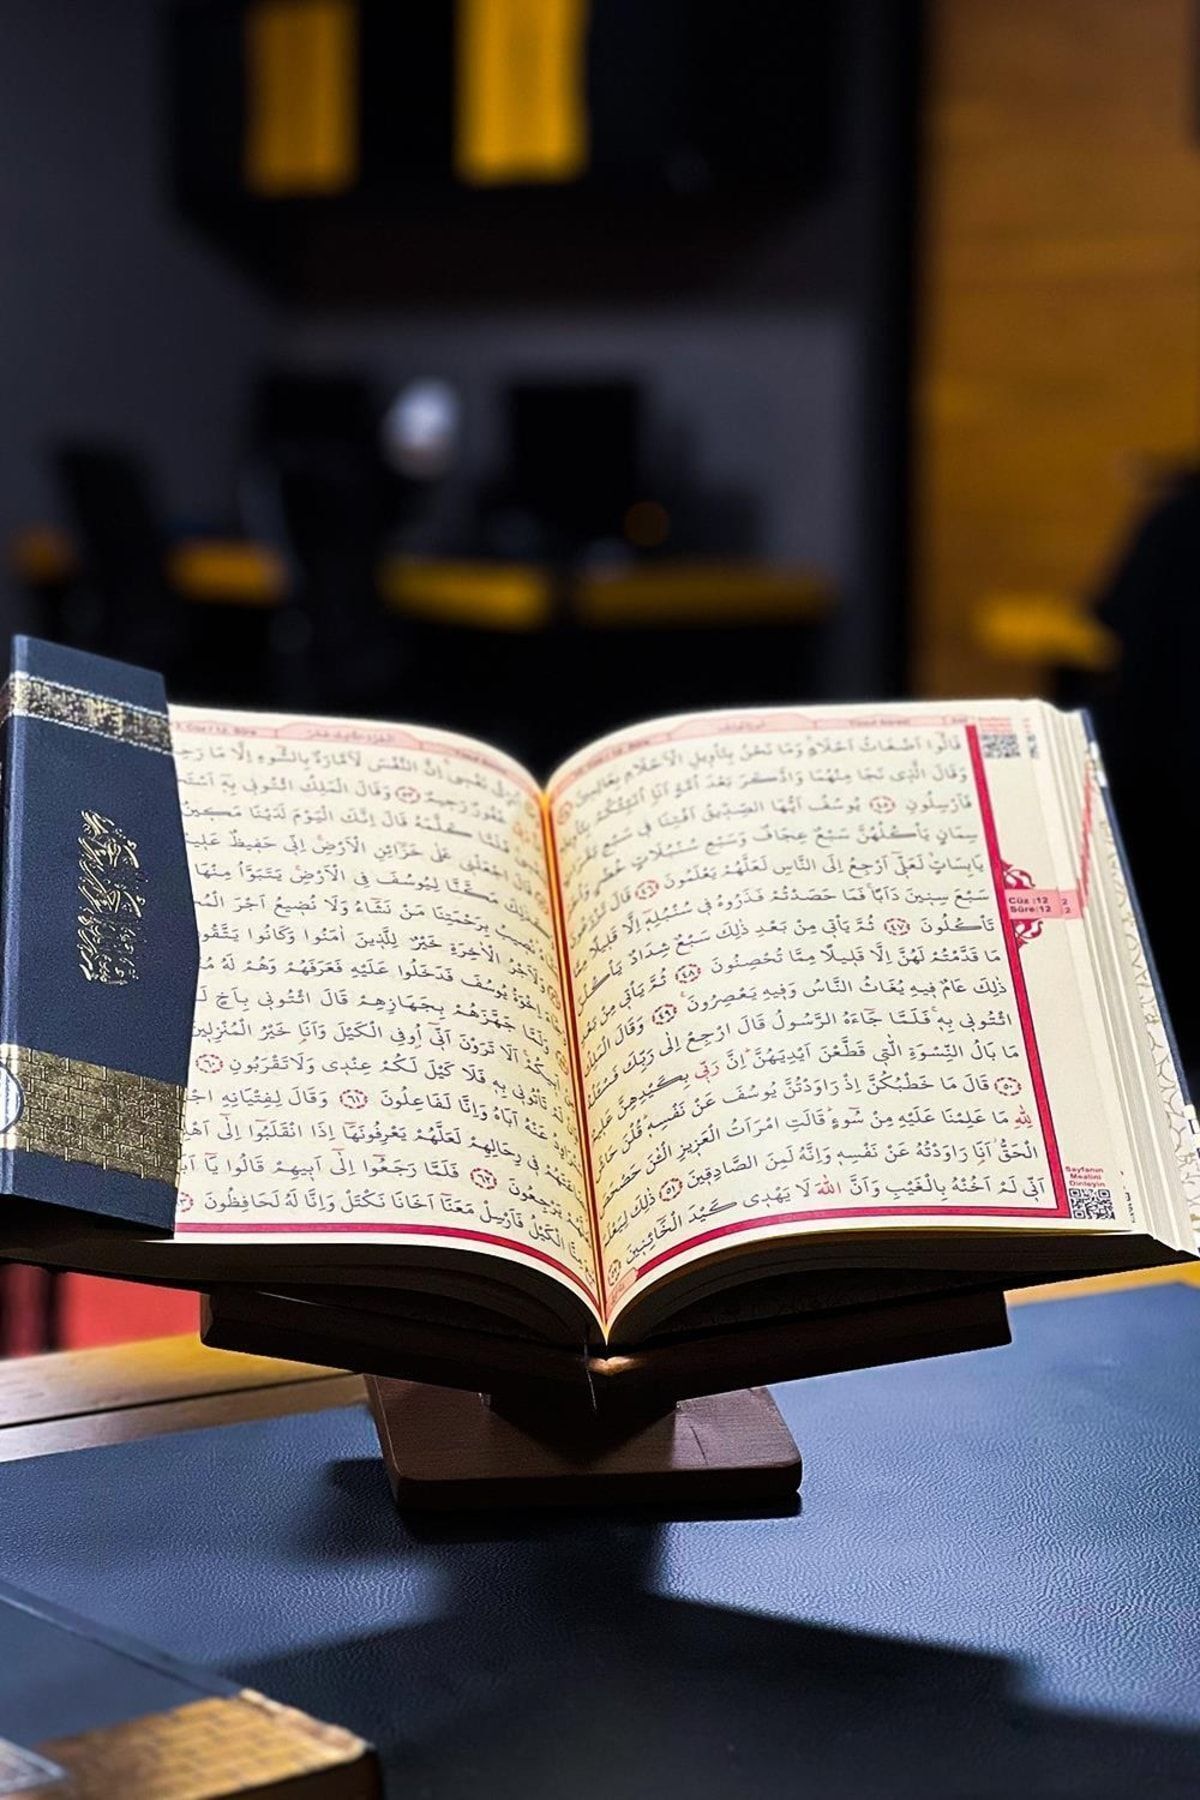 قَالُٓوا اَضْغَاثُ اَحْلَامٍۚ وَمَا نَحْنُ بِتَأْو۪يلِ الْاَحْلَامِ بِعَالِم۪ينَ
وَقَالَ الَّذ۪ي نَجَا مِنْهُمَا وَادَّكَرَ بَعْدَ اُمَّةٍ اَنَا۬ اُنَبِّئُكُمْ بِتَأْو۪يلِه۪
فَاَرْسِلُونِ ﴿٤٥﴾ يُوسُفُ اَيُّهَا الصِّدّ۪يقُ اَفْتِنَا ف۪ي سَبْعِ بَقَرَاتٍ
سِمَانٍ يَأْكُلُهُنَّ سَبْعٌ عِجَافٌ وَسَبْعِ سُنْبُلَاتٍ خُضْرٍ وَاُخَرَ
يَابِسَاتٍۙ لَعَلّ۪ٓي اَرْجِعُ اِلَى النَّاسِ لَعَلَّهُمْ يَعْلَمُونَ ﴿٤٦﴾ قَالَ تَزْرَعُونَ
سَبْعَ سِن۪ينَ دَاَبًاۚ فَمَا حَصَدْتُمْ فَذَرُوهُ ف۪ي سُنْبُلِه۪ٓ اِلَّا قَل۪يلًا مِمَّا
تَأْكُلُونَ ﴿٤٧﴾ ثُمَّ يَأْت۪ي مِنْ بَعْدِ ذٰلِكَ سَبْعٌ شِدَادٌ يَأْكُلْنَ
مَا قَدَّمْتُمْ لَهُنَّ اِلَّا قَل۪يلًا مِمَّا تُحْصِنُونَ ﴿٤٨﴾ ثُمَّ يَأْت۪ي مِنْ بَعْدِ
ذٰلِكَ عَامٌ ف۪يهِ يُغَاثُ النَّاسُ وَف۪يهِ يَعْصِرُونَ۟ ﴿٤٩﴾ وَقَالَ الْمَلِكُ
ائْتُون۪ي بِه۪ۚ فَلَمَّا جَٓاءَهُ الرَّسُولُ قَالَ ارْجِعْ اِلٰى رَبِّكَ فَسْـَٔلْهُ
مَا بَالُ النِّسْوَةِ الّٰت۪ي قَطَّعْنَ اَيْدِيَهُنَّۜ اِنَّ رَبّ۪ي بِكَيْدِهِنَّ عَل۪يمٌ
﴿٥٠﴾ قَالَ مَا خَطْبُكُنَّ اِذْ رَاوَدْتُنَّ يُوسُفَ عَنْ نَفْسِه۪ۜ قُلْنَ حَاشَ
لِلّٰهِ مَا عَلِمْنَا عَلَيْهِ مِنْ سُٓوءٍۜ قَالَتِ امْرَاَتُ الْعَز۪يزِ الْـٰٔنَ حَصْحَصَ
الْحَقُّۘ اَنَا۬ رَاوَدْتُهُ عَنْ نَفْسِه۪ وَاِنَّهُ لَمِنَ الصَّادِق۪ينَ ﴿٥١﴾ ذٰلِكَ لِيَعْلَمَ
اَنّ۪ي لَمْ اَخُنْهُ بِالْغَيْبِ وَاَنَّ اللّٰهَ لَا يَهْد۪ي كَيْدَ الْخَٓائِن۪ينَ
Cüz :12
Sûre:12
Sayfanın
Mealini
Dinleyin
نَفْس۪يۚ اِنَّ النَّفْسَ لَاَمَّارَةٌ بِالسُّٓوءِ اِلَّا مَا رَحِمَ
غَفُورٌ رَح۪يمٌ ﴿٥٣﴾ وَقَالَ الْمَلِكُ ائْتُون۪ي بِه۪ٓ
فَلَمَّا كَلَّمَهُ قَالَ اِنَّكَ الْيَوْمَ لَدَيْنَا مَك۪ينٌ
قَالَ اجْعَلْن۪ي عَلٰى خَزَٓائِنِ الْاَرْضِۚ اِنّ۪ي حَف۪يظٌ عَل۪يمٌ
مَكَّنَّا لِيُوسُفَ فِي الْاَرْضِۚ يَتَبَوَّاُ مِنْهَا
نُص۪يبُ بِرَحْمَتِنَا مَنْ نَشَٓاءُ وَلَا نُض۪يعُ اَجْرَ
وَلَاَجْرُ الْاٰخِرَةِ خَيْرٌ لِلَّذ۪ينَ اٰمَنُوا وَكَانُوا يَتَّقُونَ
اِخْوَةُ يُوسُفَ فَدَخَلُوا عَلَيْهِ فَعَرَفَهُمْ وَهُمْ لَهُ
وَلَمَّا جَهَّزَهُمْ بِجَهَازِهِمْ قَالَ ائْتُون۪ي بِاَخٍ
اَب۪يكُمْۚ اَلَا تَرَوْنَ اَنّ۪ٓي اُو۫فِي الْكَيْلَ وَاَنَا۬ خَيْرُ الْمُنْزِل۪ينَ
لَمْ تَأْتُون۪ي بِه۪ فَلَا كَيْلَ لَكُمْ عِنْد۪ي وَلَا تَقْرَبُونِ ﴿٦٠﴾
عَنْهُ اَبَاهُ وَاِنَّا لَفَاعِلُونَ ﴿٦١﴾ وَقَالَ لِفِتْيَانِهِ
ف۪ي رِحَالِهِمْ لَعَلَّهُمْ يَعْرِفُونَهَٓا اِذَا انْقَلَبُٓوا اِلٰٓى
يَرْجِعُونَ ﴿٦٢﴾ فَلَمَّا رَجَعُٓوا اِلٰٓى اَب۪يهِمْ قَالُوا يَٓا
الْكَيْلُ فَاَرْسِلْ مَعَنَٓا اَخَانَا نَكْتَلْ وَاِنَّا لَهُ لَحَافِظُونَ